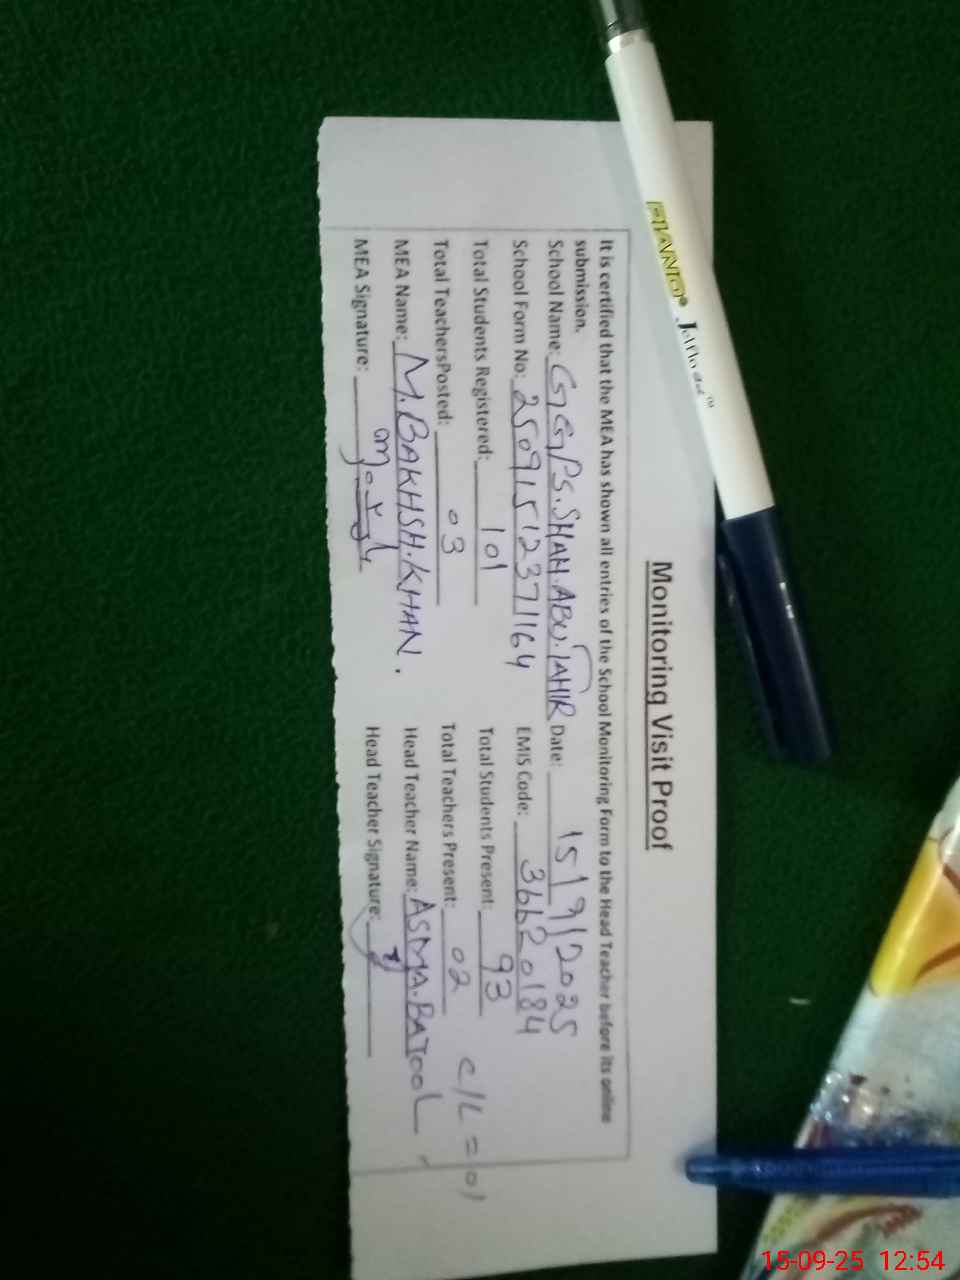 Monitoring Visit Proof
It is certified that the MEA has shown all entries of the School Monitoring Form to the Head Teacher before its online
submission.
School Name: GGPS. SHAH. ABU. TAHIR Date: 15/9/2025
School Form No: 25091512371164 EMIS Code: 36620184
Total Students Registered: 101 Total Students Present: 93
Total TeachersPosted: 03 Total Teachers Present: 02 C/L = 01
MEA Name: M. BAKHSH. KHAN. Head Teacher Name: ASMA. BATOOL
MEA Signature: Head Teacher Signature:
PIANO
15-09-25 12:54